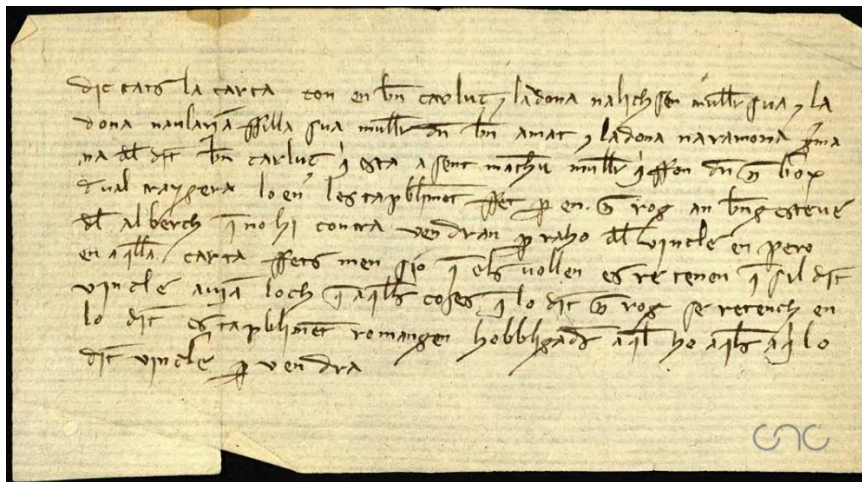 dictats la carta con en bn carluç y ladona nalichsen mullr sua y la
dona naularia ffilla sua mullr dun bn amat y ladona naramona
na dl dit bn carluç q esta a sent mullr q ffon dun
lo en lescapblimet ffet p en roig an bng esteve
dl alberch q no hi contra vendran p raho dl vincle en pero
en aqlla carta ffets men sio q els vollen es re tenen q sil dit
vincle avia loch q aqlls coses q lo dit roig se retench en
lo dit escapblimet romangen hobbligads aql ho aqlls aq lo
dit vincle p vendra